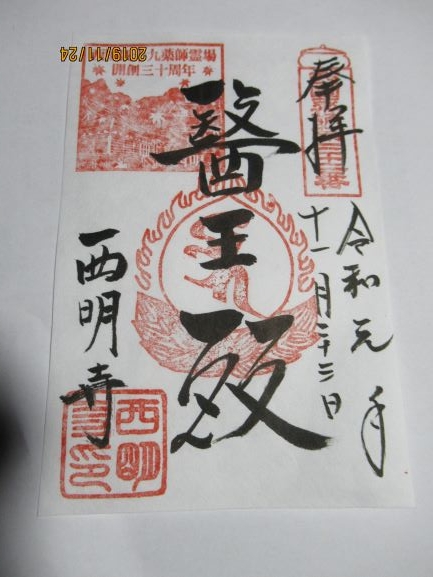 2019/11/24
九薬師霊場
開創三十周年
奉拝
令和元年
十一月二十三日
醫王殿
西明寺
西明寺印